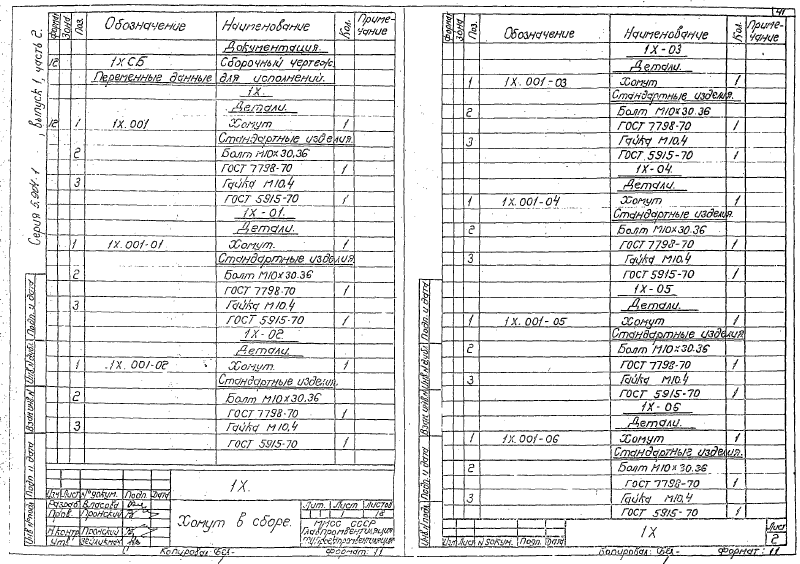 Серия 5.904-1, выпуск 1, часть 2.
Формат Зона Поз. Обозначение Наименование Кол. Примечание
Документация
12 1Х СБ Сборочный чертеж.
Переменные данные для исполнений.
1Х.
Детали.
12 1 1Х.001 Хомут 1
Стандартные изделия
2 Болт М10х30.36
ГОСТ 7798-70 1
3 Гайка М10.4
ГОСТ 5915-70 1
1Х-01.
Детали.
1 1Х.001-01 Хомут. 1
Стандартные изделия
2 Болт М10х30.36
ГОСТ 7798-70 1
3 Гайка М10.4
ГОСТ 5915-70 1
1Х-02.
Детали.
1 1Х.001-02 Хомут. 1
Стандартные изделия.
2 Болт М10х30.36
ГОСТ 7798-70 1
3 Гайка М10.4
ГОСТ 5915-70 1
Подп. и дата
Взам.инв.№
Подп. и дата
Изм Лист № докум. Подп. Дата
Разраб. Власова
Пров. Пронский
Н.контр. Пронский
Утв.
1Х.
Хомут в сборе.
Лит. Лист Листов
1 16
ММСС СССР
Главпромвентиляция
Копировал
Формат: 11
41
Формат Зона Поз. Обозначение Наименование Кол. Примечание
1Х-03
Детали.
1 1Х.001-03 Хомут 1
Стандартные изделия.
2 Болт М10х30.36
ГОСТ 7798-70 1
3 Гайка М10.4
ГОСТ 5915-70 1
1Х-04.
Детали.
1 1Х.001-04 Хомут 1
Стандартные изделия.
2 Болт М10х30.36
ГОСТ 7798-70 1
3 Гайка М10.4
ГОСТ 5915-70 1
1Х-05
Детали.
1 1Х.001-05 Хомут 1
Стандартные изделия
2 Болт М10х30.36
ГОСТ 7798-70 1
3 Гайка М10.4
ГОСТ 5915-70 1
1Х-06
Детали.
1 1Х.001-06 Хомут 1
Стандартные изделия.
2 Болт М10х30.36
ГОСТ 7798-70 1
3 Гайка М10.4
ГОСТ 5915-70 1
Подп. и дата
Взам.инв.№
Подп. и дата
Изм Лист № докум. Подп. Дата
1Х
Лист
2
Копировал
Формат: 11